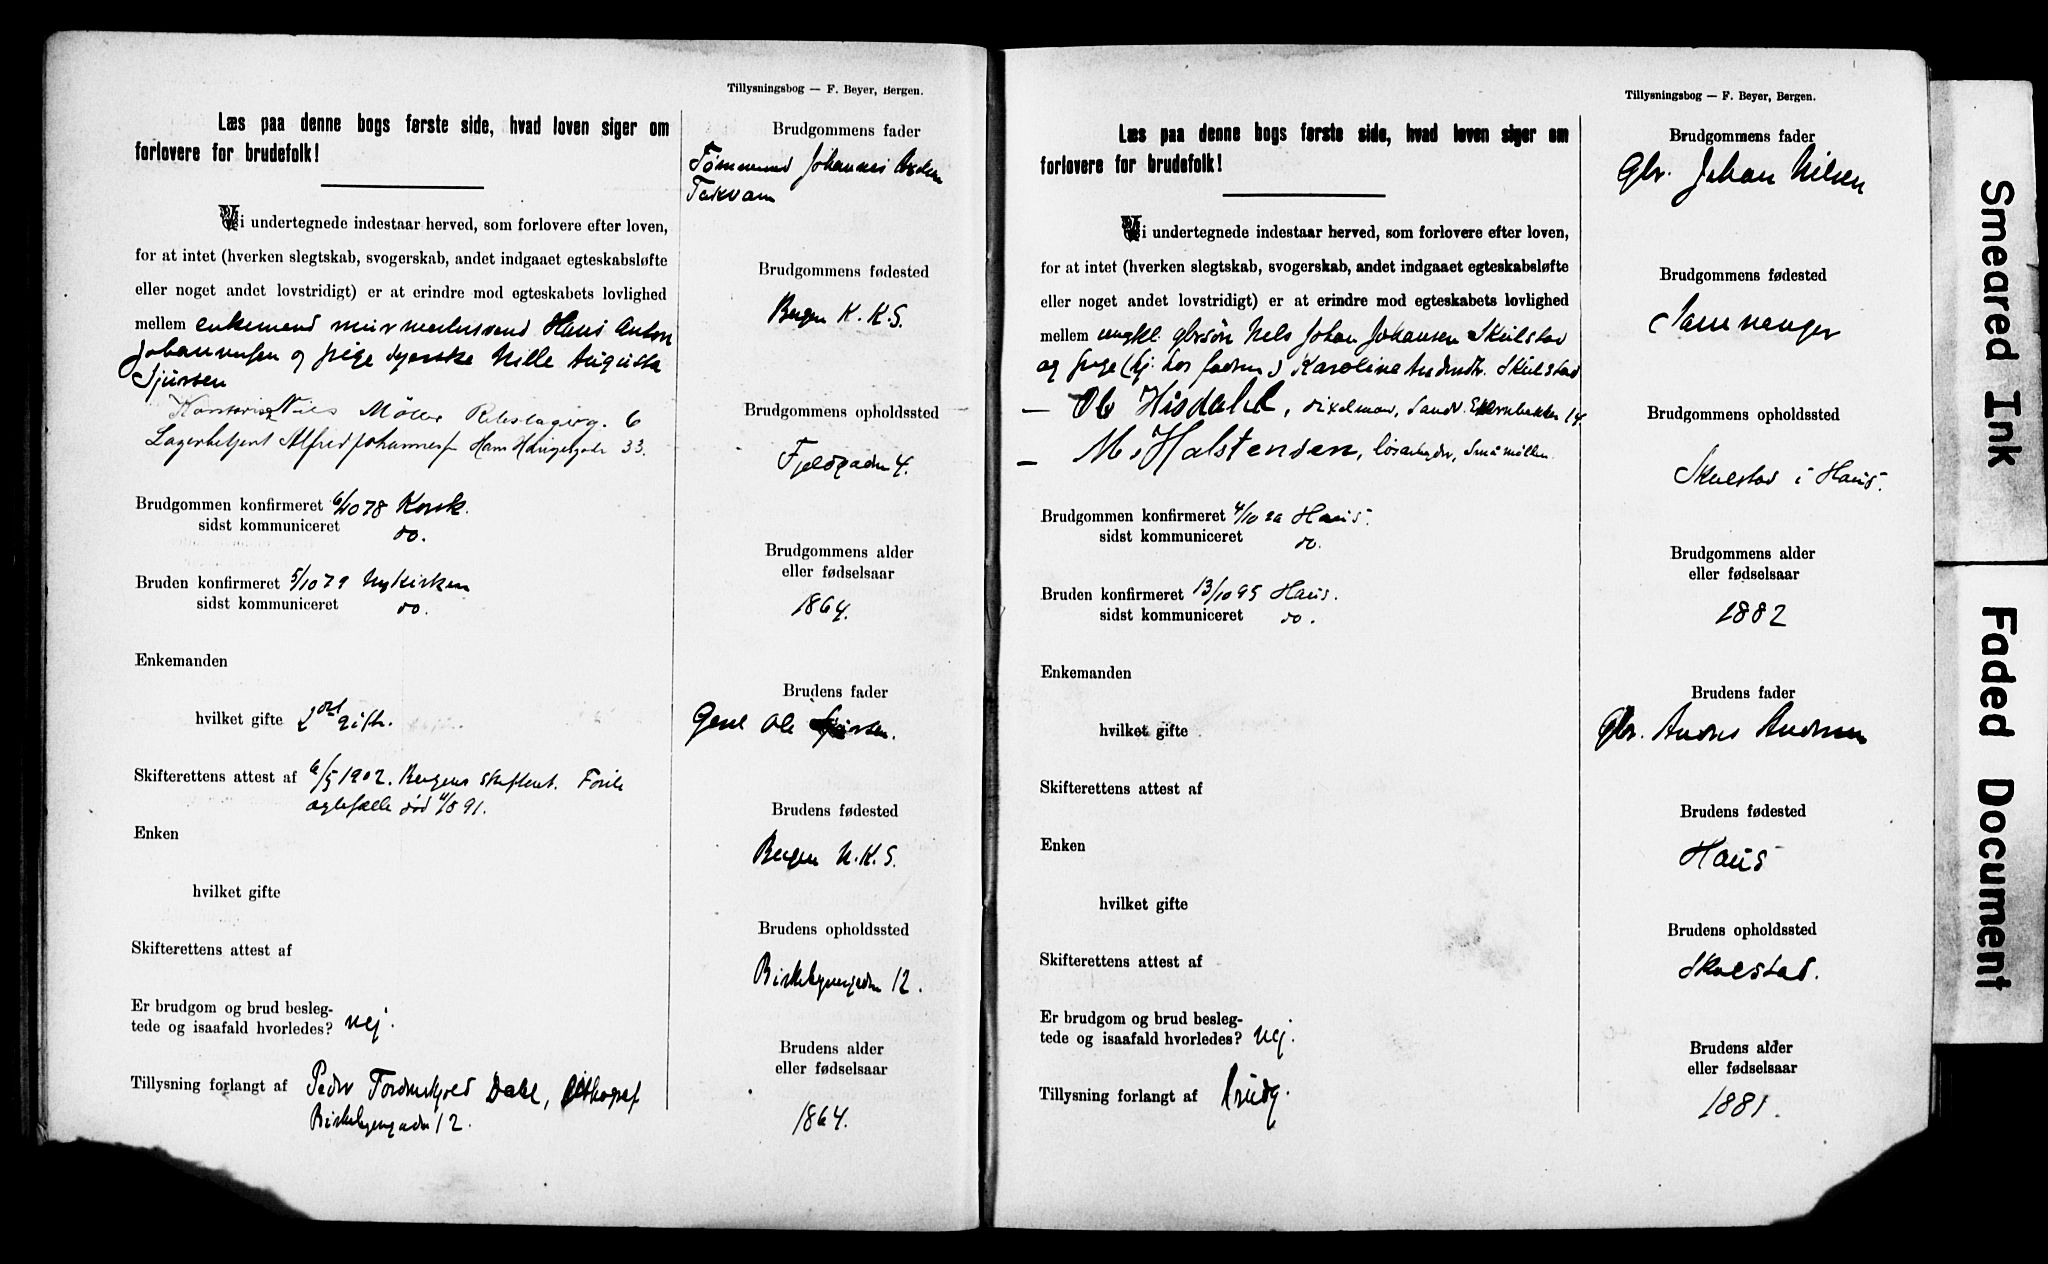 Tillysningsbog — F. Beyer, Bergen.
Læs paa denne bogs første side, hvad loven siger om
forlovere for brudefolk!
Vi undertegnede indestaar herved, som forlovere efter loven,
for at intet (hverken slegtskab, svogerskab, andet indgaaet egteskabsløfte
eller noget andet lovstridigt) er at erindre mod egteskabets lovlighed
mellem enkemand murmestersvend Hans Anton
Johannessen og pige syerske Nille Augusta
Sjursen
Kontorist Niels Møller Rebslagerg. 6
Lagerbetjent Alfred Johannes Hans Haugesgade 33.
Brudgommen konfirmeret 6/10 78 Korsk.
sidst kommuniceret do.
Bruden konfirmeret 5/10 79 Nykirken
sidst kommuniceret do.
Enkemanden
hvilket gifte 2det gifte.
Skifterettens attest af 6/5 1902. Bergens skifteret. Forrige
egtefælle død 4/8 91.
Enken
hvilket gifte
Skifterettens attest af
Er brudgom og brud besleg-
tede og isaafald hvorledes? nej.
Tillysning forlangt af Peder Tordenskjold Dahl, Lithograf
Birkebeinergaden 12.
Brudgommens fader
Tømmermand Johannes
Takvam
Brudgommens fødested
Bergen K. K. S.
Brudgommens opholdssted
Fjeldgaden 4.
Brudgommens alder
eller fødselsaar
1864.
Brudens fader
Ole Sjursen.
Brudens fødested
Bergen N. K. S.
Brudens opholdssted
Birkebeinergaden 12.
Brudens alder
eller fødselsaar
1864.
Tillysningsbog — F. Beyer, Bergen.
Læs paa denne bogs første side, hvad loven siger om
forlovere for brudefolk!
Vi undertegnede indestaar herved, som forlovere efter loven,
for at intet (hverken slegtskab, svogerskab, andet indgaaet egteskabsløfte
eller noget andet lovstridigt) er at erindre mod egteskabets lovlighed
mellem ungkl. gbrsøn Nels Johan Johansen Skulstad
og pige (hj. hos fadren) Karoline Andersdtr. Skulstad
— Ole Hisdahl, Sandv. 14
— M. Halstensen, løsarbeider, Småmøllen.
Brudgommen konfirmeret 4/10 Haus.
sidst kommuniceret do.
Bruden konfirmeret 13/10 95 Haus.
sidst kommuniceret do.
Enkemanden
hvilket gifte
Skifterettens attest af
Enken
hvilket gifte
Skifterettens attest af
Er brudgom og brud besleg-
tede og isaafald hvorledes? nej.
Tillysning forlangt af brudg.
Brudgommens fader
Gbr. Johan Nilsen
Brudgommens fødested
Samnanger
Brudgommens opholdssted
Skulstad i Haus.
Brudgommens alder
eller fødselsaar
1882
Brudens fader
Gbr. Anders Andersen
Brudens fødested
Haus
Brudens opholdssted
Skulstad.
Brudens alder
eller fødselsaar
1881.
Smeared Ink
Faded Document